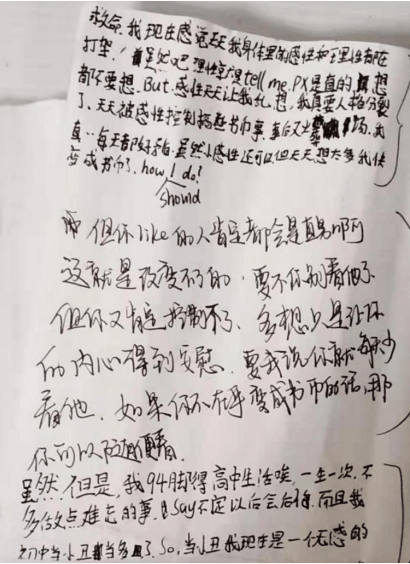 救命,我现在感觉天天我身体里的感性和理性都在
打架!虽然吧理性它tell me PX是直的,想
都不要想. But.感性天天让我乱想,我真要人格分裂
了、天天被感性控制
真..每天都好矛盾.虽然小感性还可以但天天想太多我快
变成书币了、how I do!
should
但你like的人肯定都会是直男啊
这就是改变不了的,要不你别看他了
但你又肯定控制不了、多想只是让你
的内心得到安慰,要我说你就每天少
看他,如果你不在乎变成书币的话,那
你可以随便看.
虽然.但是,我94觉得高中生活唉,一生一次,不
多做点难忘的事,say不定以后会后悔.而且我
初中当小丑当多了.So,当小丑我现在是一个无感的